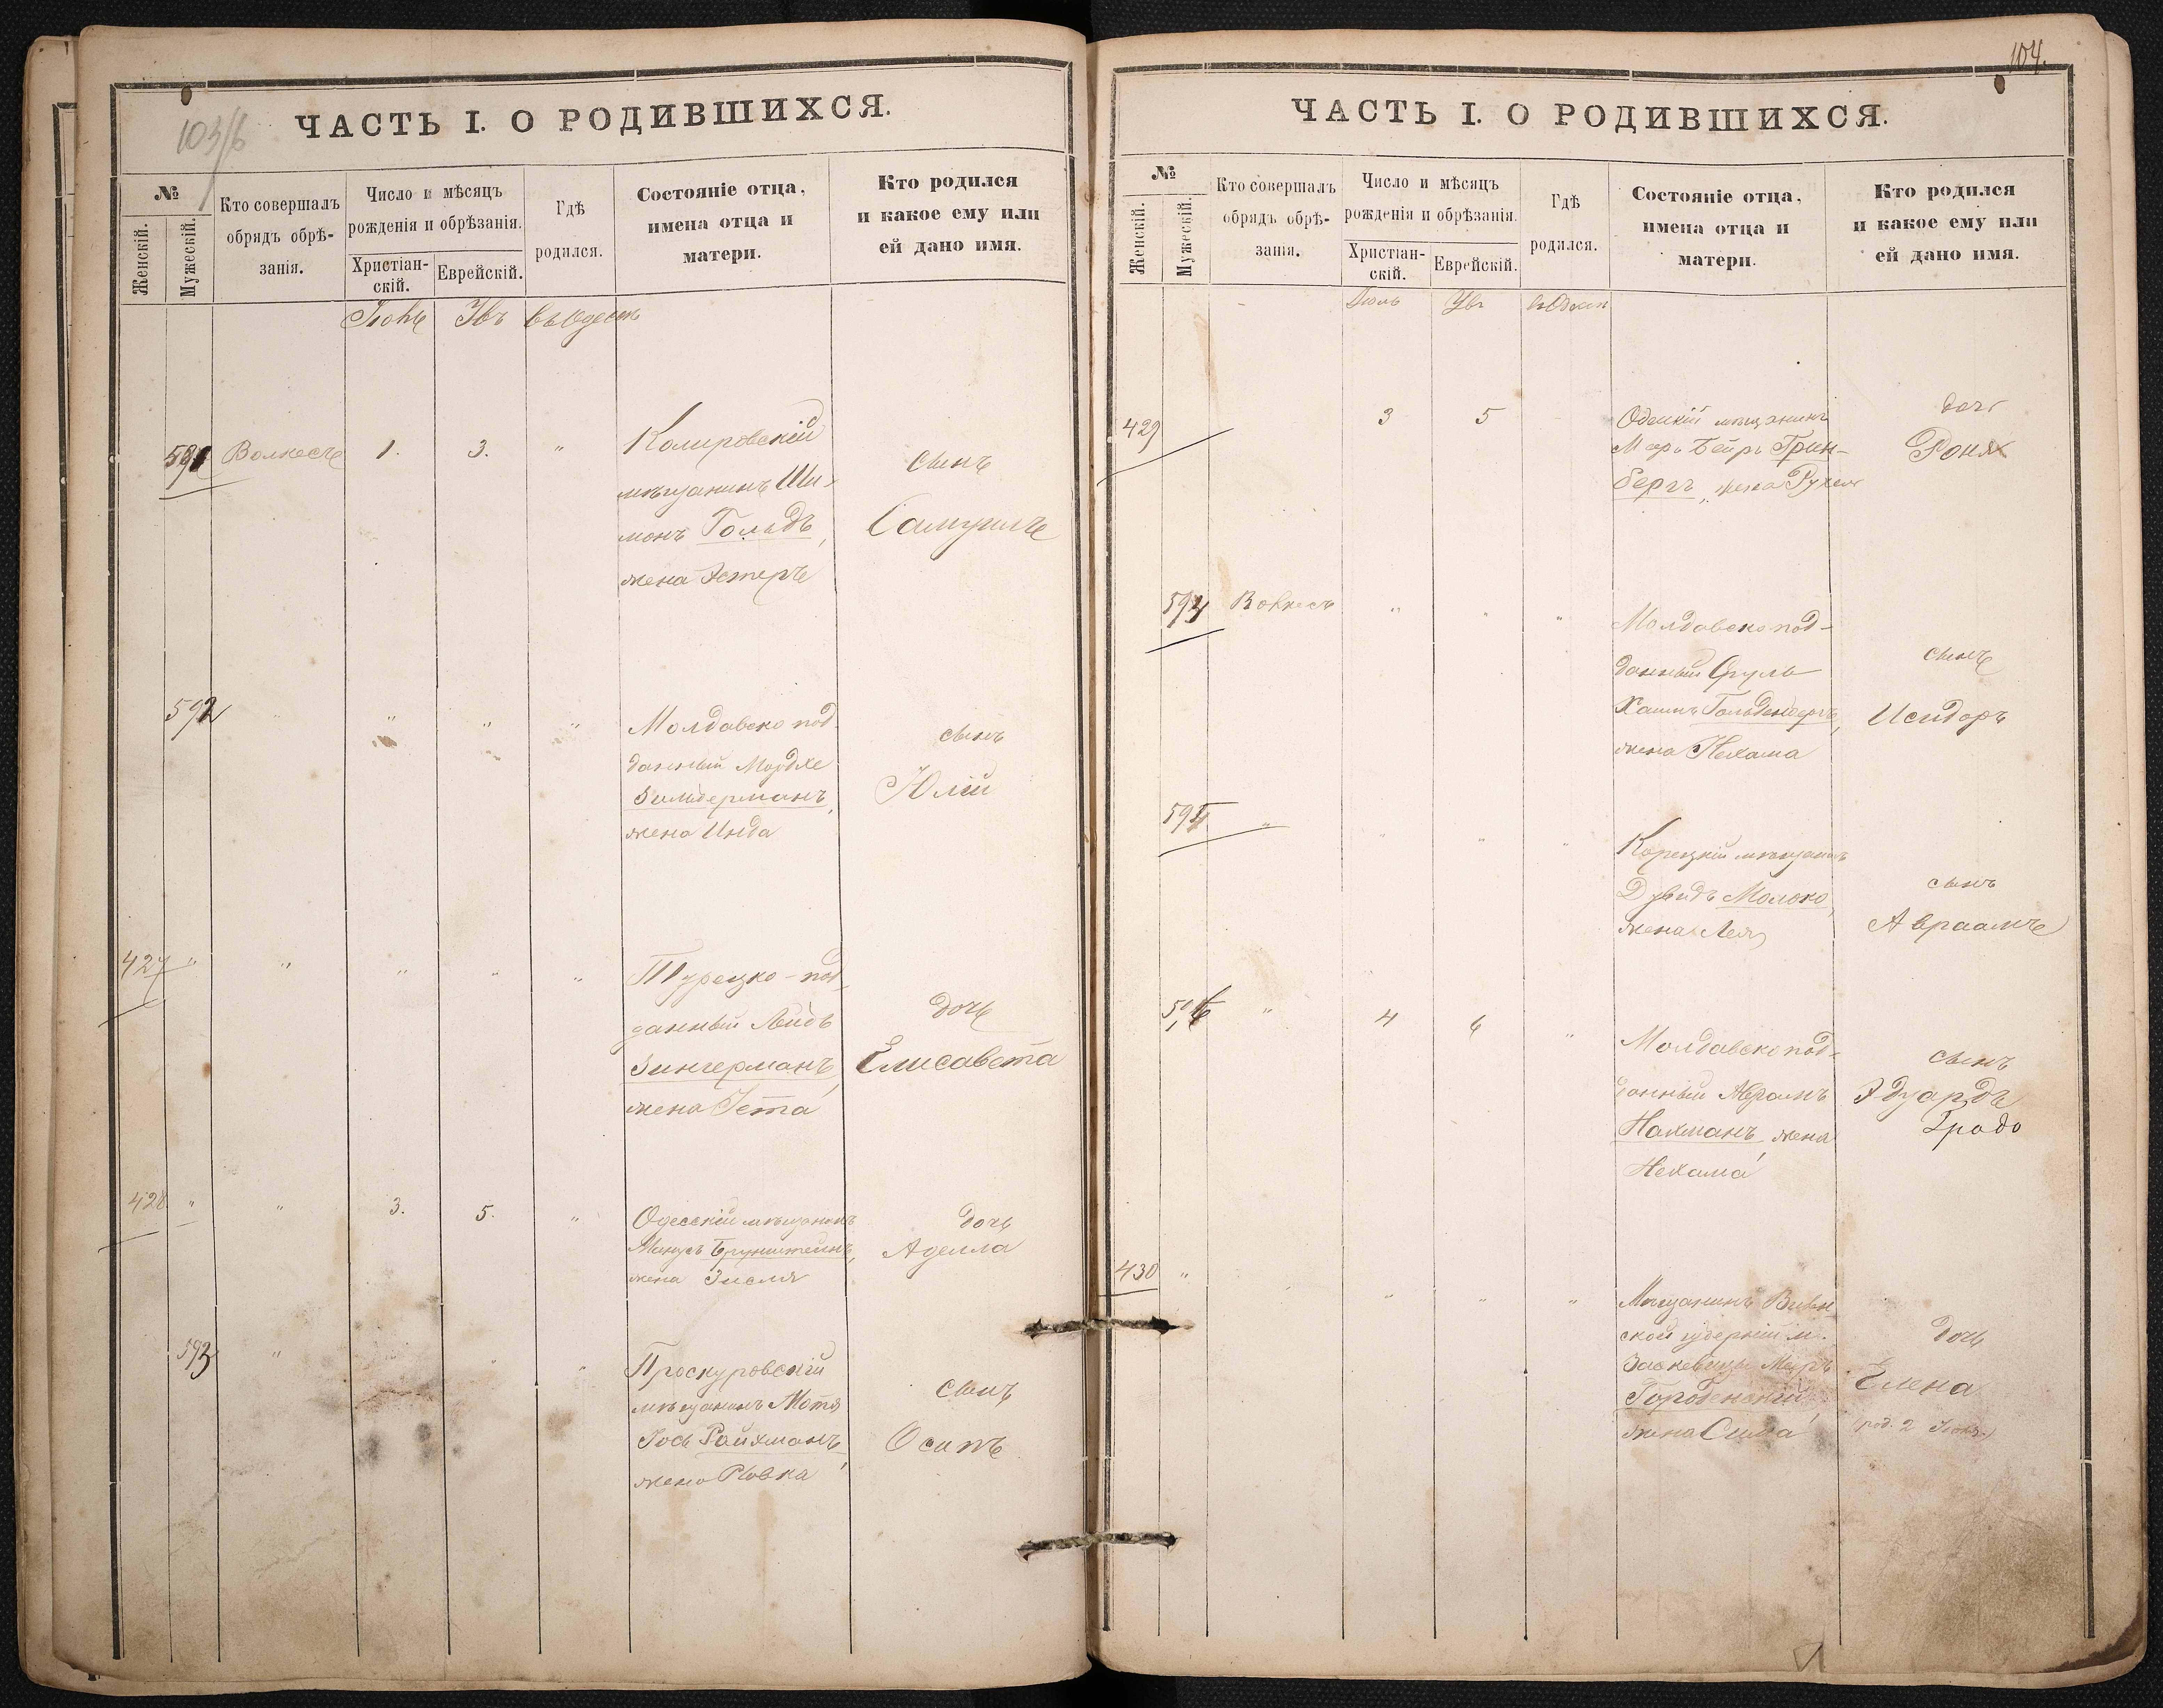 103/б
ЧАСТЬ I. О РОДИВШИХСЯ.
№
Женскій.
Мужескій.
Кто совершалъ
обрядъ обрѣ-
занія.
Число и мѣсяцъ
рожденія и обрѣзанія.
Христіан-
скій.
Еврейскій.
Гдѣ
родился.
Состояніе отца,
имена отца и
матери.
Кто родился
и какое ему или
ей дано имя.
въ Одессѣ
591
1.
3.
"
мѣщанинъ Ши-
монъ Гольдъ,
жена Эстеръ
сынъ
Самуилъ
592
"
"
"
"
Молдавско под
данный Мордхе
Зильберманъ,
жена Инда
сынъ
Юлій
427
"
"
"
"
"
Турецко-под
данный Лейбъ
Зингерманъ,
жена Iета
дочь
Елисавета
428
"
"
3.
5.
"
Одесскій мѣщанинъ
Брунштейнъ,
жена Зисля
дочь
Аделла
593
"
"
"
Проскуровскій
мѣщанинъ Мотя
Iось Райхманъ,
жена Ривка
сынъ
Осипъ
104.
ЧАСТЬ I. О РОДИВШИХСЯ.
№
Женскій.
Мужескій.
Кто совершалъ
обрядъ обрѣ-
занія.
Число и мѣсяцъ
рожденія и обрѣзанія.
Христіан-
скій.
Еврейскій.
Гдѣ
родился.
Состояніе отца,
имена отца и
матери.
Кто родился
и какое ему или
ей дано имя.
429
3
5
Одесскій мѣщанинъ
Меръ Бейръ Грин-
бергъ, жена Рухля
дочь
Роня
594
"
"
"
Молдавско под-
данный Сруль
Хаимъ Гольденбергъ,
жена Нехама
сынъ
Исидоръ
595
"
"
"
"
Корецкій мѣщанинъ
Дувидъ Молоко,
жена Лея
сынъ
Авраамъ
596
"
4
6
"
Молдавско под-
данный Абрамъ
Нахманъ, жена
Нехама
сынъ
Эдуардъ
430
"
"
"
"
Мѣщанинъ Вилен
ской губерніи м.
Меръ
жена Сима
дочь
Елена